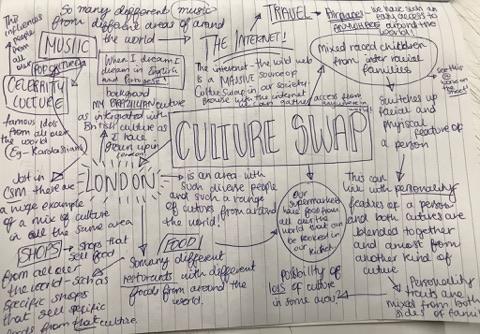 So many different music
from different areas of around
the world
The influences
people
from
all over
MUSIC
POP CULTURE
CELEBRITY
CULTURE
famous idols
from all over
the world
(Eg - Kardashians)
When I dream I
dream in English
and Portuguese!
background
my BRAZILIAN culture
as intergrated with
British culture as
I have
grown up in
London
THE INTERNET!
The internet - the wild web
is a MASSIVE source of
Culture Swap in our society
Browse with the internet
we can gather access from
anywhere in
TRAVEL
Airplanes we have such an
easy access to
ANYWHERE around
the world!!
mixed raced children
from inter racial
families
see this
on the
sheet!
CULTURE SWAP
Switches up
facial and
physical feature of
a person
This can
link with personality
features of a person
and both cultures are
blended together
and almost from
another kind of
culture
Personality
traits are
mixed from both
sides of family
LONDON
is an area with
such diverse people
and such a range
of cultures from around
the world!
Just in
CSM there are
a huge example
of a mix of culture
in all the same area
SHOPS
Shops that
sell food
from all over
the world - such as
specific shops
that sell specific
goods from that culture.
FOOD
So many different
restaurants with different
foods from around the
world.
Our supermarkets
have food from
all over the
world that can
be cooked in
our kitchen
possibility of
loss of culture
in some areas?